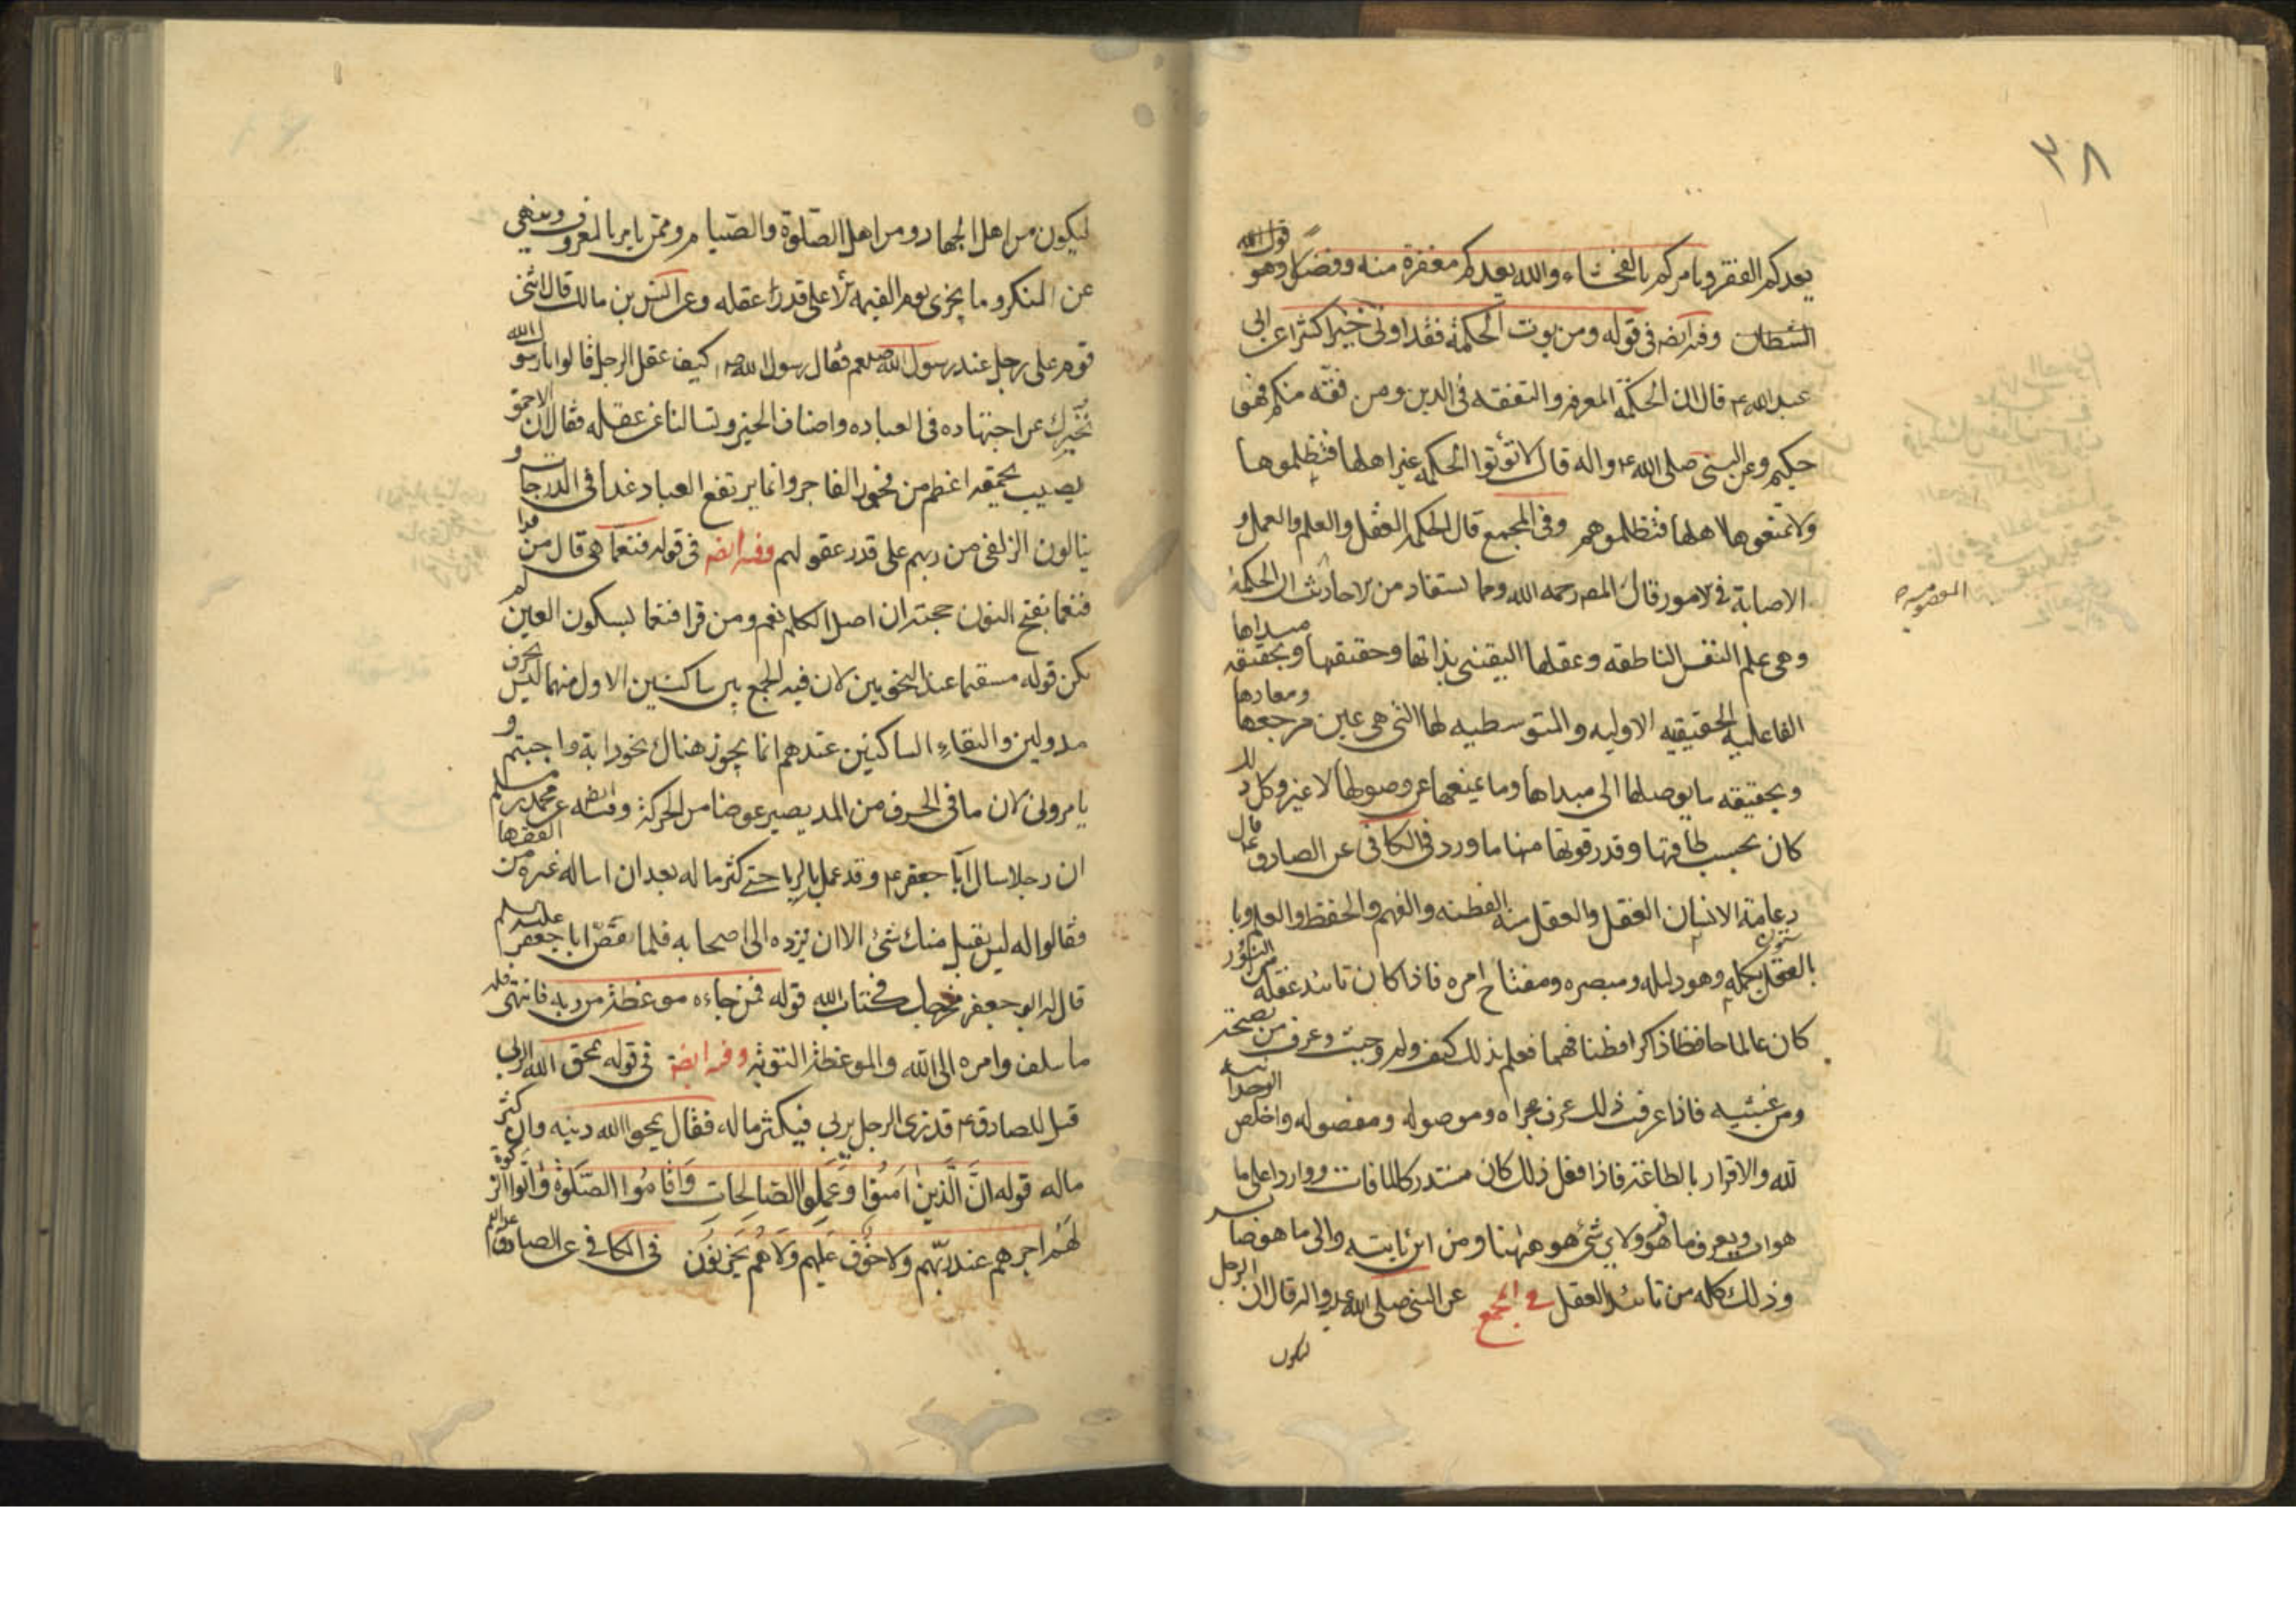 ٣٨
يعدكم الفقر ويامركم بالفحشاء والله يعدكم مغفرة منه وفضلا وهو قول الله
الشطان وفيه ايضه فى قوله ومن يوت الحكمة فقد اوتى خيرا كثيرا عن ابى
عبد الله ع قال ان الحكمة المعرفه والتفقه فى الدين ومن فقه منكم فهو
حكيم وعن النبى صلى الله ع واله قال لا تؤتوا الحكمه غير اهلها فتظلموها
ولا تمنعوها اهلها فتظلموهم وفى المجمع قال الحكم العقل والعلم والعمل و
الاصابة فى لامور قال المص رحمه الله ومما يستفاد من لاحاديث ان الحكمة
وهى علم النفس الناطقه وعقلها اليقينى بذاتها وحقيقتها وبحقيقه مبداها
الفاعليه الحقيقيه الاوليه والمتوسطيه لها التى هى عين مرجعها ومعادها
وبحقيقه ما يوصلها الى مبداها وما يمنعها عن وصولها لا غير وكل ذلك
كان بحسب طاقتها وقدر قوتها منها ما ورد فى الكافى عن الصادق ع قال
دعامة الانسان العقل والعقل منه الفطنه والفهم والحفظ والعلم وبا
بالعقل يكمله وهو دليله ومبصره ومفتاح امره فاذا كان تائيد عقله من النور
كان عالما حافظا ذاكرا فطنا فهما فعلم بذلك كيف ولم وحيث وعرف من نصحه
ومن غشه فاذا عرف ذلك عرف مجراه وموصوله ومفصوله واخلص الوحدانيه
لله والاقرار بالطاعته فاذا فعل ذلك كان مستدركا لما فات وواردا على ما
هوات ويعرف ما هو فيه ولاى شئ هو ههنا ومن اين ياتيه والى ما هو صائر
وذلك كله من تائيد العقل فى المجمع عن النبى صلى الله عليه واله قال ان الرجل
ليكون
ليكون من اهل الجهاد ومن اهل الصلوة والصيام وممن يامر بالمعروف وينهى
عن المنكر وما يجزى يوم القيمه لا على قدر عقله وعن انس بن مالك قال اثنى
قوم على رجل عند رسول الله صلعم فقال رسول الله ص كيف عقل الرجل قالوا يا رسول الله
نخبرك عن اجتهاده فى العباده واصناف الخير وتسالنا عن عقله فقال ان الاحمق
يصيب بحمقه اعظم من فجور الفاجر وانما يرتفع العباد غدا فى الدرجات و
ينالون الزلفى من ربهم على قدر عقولهم وفيه ايضه فى قوله فنعما هى قال من قرا
فنعما بفتح النون حجته ان اصل الكلم نعم ومن قرا فنعما بسكون العين لم
يكن قوله مستقيما عند النحويين لان فيه الجمع بين ساكنين الاول منهما ليس بحرف
مد ولين والتقاء الساكنين عندهم انما يجوز هناك نحو دابة و
يامرونى لان ما فى الحرف من المد يصير عوضا من الحركة وفيه ايضه عن محمد بن مسلم
ان رجلا سال ابا جعفر ع وقد عمل بالربا حتى كثر ماله بعد ان اساله غيره من الفقها
فقالوا له ليس يقبل منك شئ الا ان نرده الى اصحابه فلما قص ابا جعفر عليه السلم
قال له ابو جعفر مخرجك فى كتاب الله قوله فمن جاءه موعظة من ربه فانتهى فله
ما سلف وامره الى الله والموعظة التوبة وفيه ايضه فى قوله يمحق الله الربى
قيل للصادق ع قد نرى الرجل يربى فيكثر ماله فقال يمحو الله دينه وان كثر
ماله قوله ان الذين امنوا وعملوا الصالحات واقاموا الصلوة واتوا الزكوة
لهم اجرهم عند ربهم ولا خوف عليهم ولا هم يحزنون فى الكافى عن الصادق